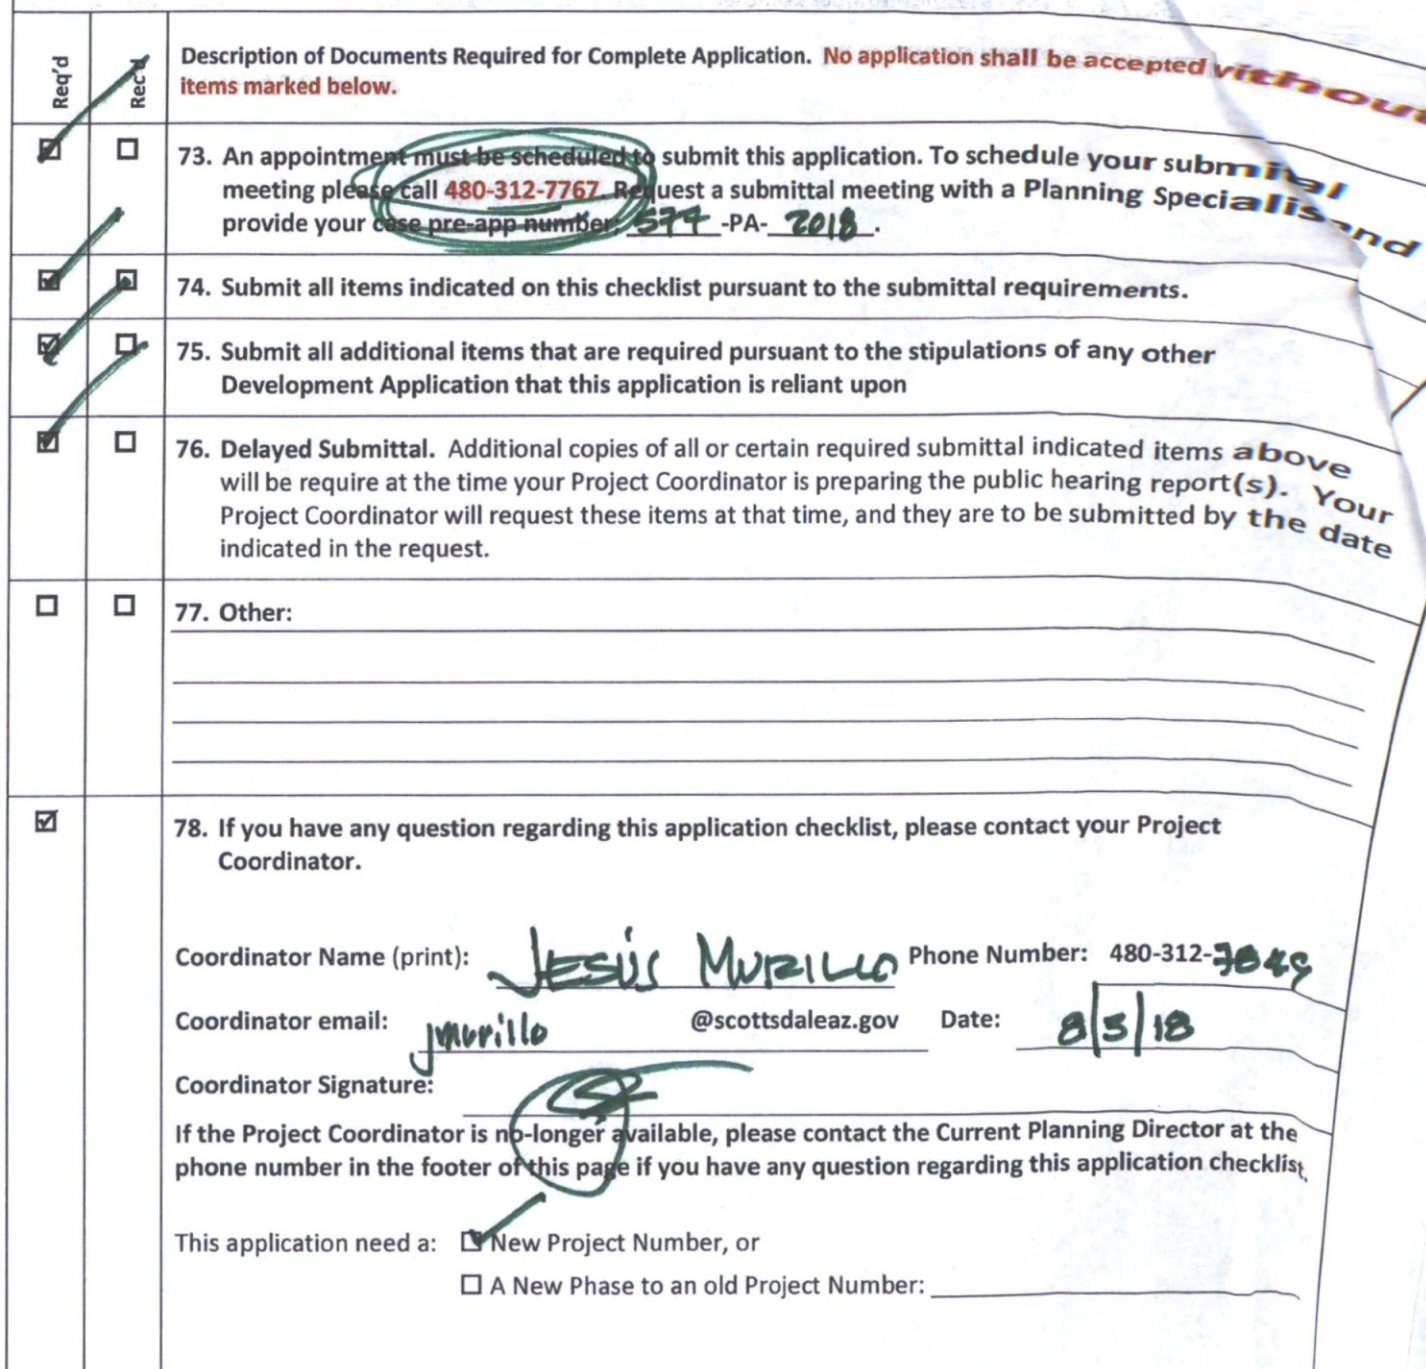 Req'd
Rec'd
Description of Documents Required for Complete Application. No application shall be accepted without
items marked below.
73. An appointment must be scheduled to submit this application. To schedule your submital
meeting please call 480-312-7767. Request a submittal meeting with a Planning Specialis and
provide your case pre-app number: 577-PA-2018.
74. Submit all items indicated on this checklist pursuant to the submittal requirements.
75. Submit all additional items that are required pursuant to the stipulations of any other
Development Application that this application is reliant upon
76. Delayed Submittal. Additional copies of all or certain required submittal indicated items above
will be require at the time your Project Coordinator is preparing the public hearing report(s). Your
Project Coordinator will request these items at that time, and they are to be submitted by the date
indicated in the request.
77. Other:
78. If you have any question regarding this application checklist, please contact your Project
Coordinator.
Coordinator Name (print): JESÚS MURILLO Phone Number: 480-312-7849
Coordinator email: jmurillo @scottsdaleaz.gov Date: 8/3/18
Coordinator Signature:
If the Project Coordinator is no-longer available, please contact the Current Planning Director at the
phone number in the footer of this page if you have any question regarding this application checklist.
This application need a: New Project Number, or
A New Phase to an old Project Number: